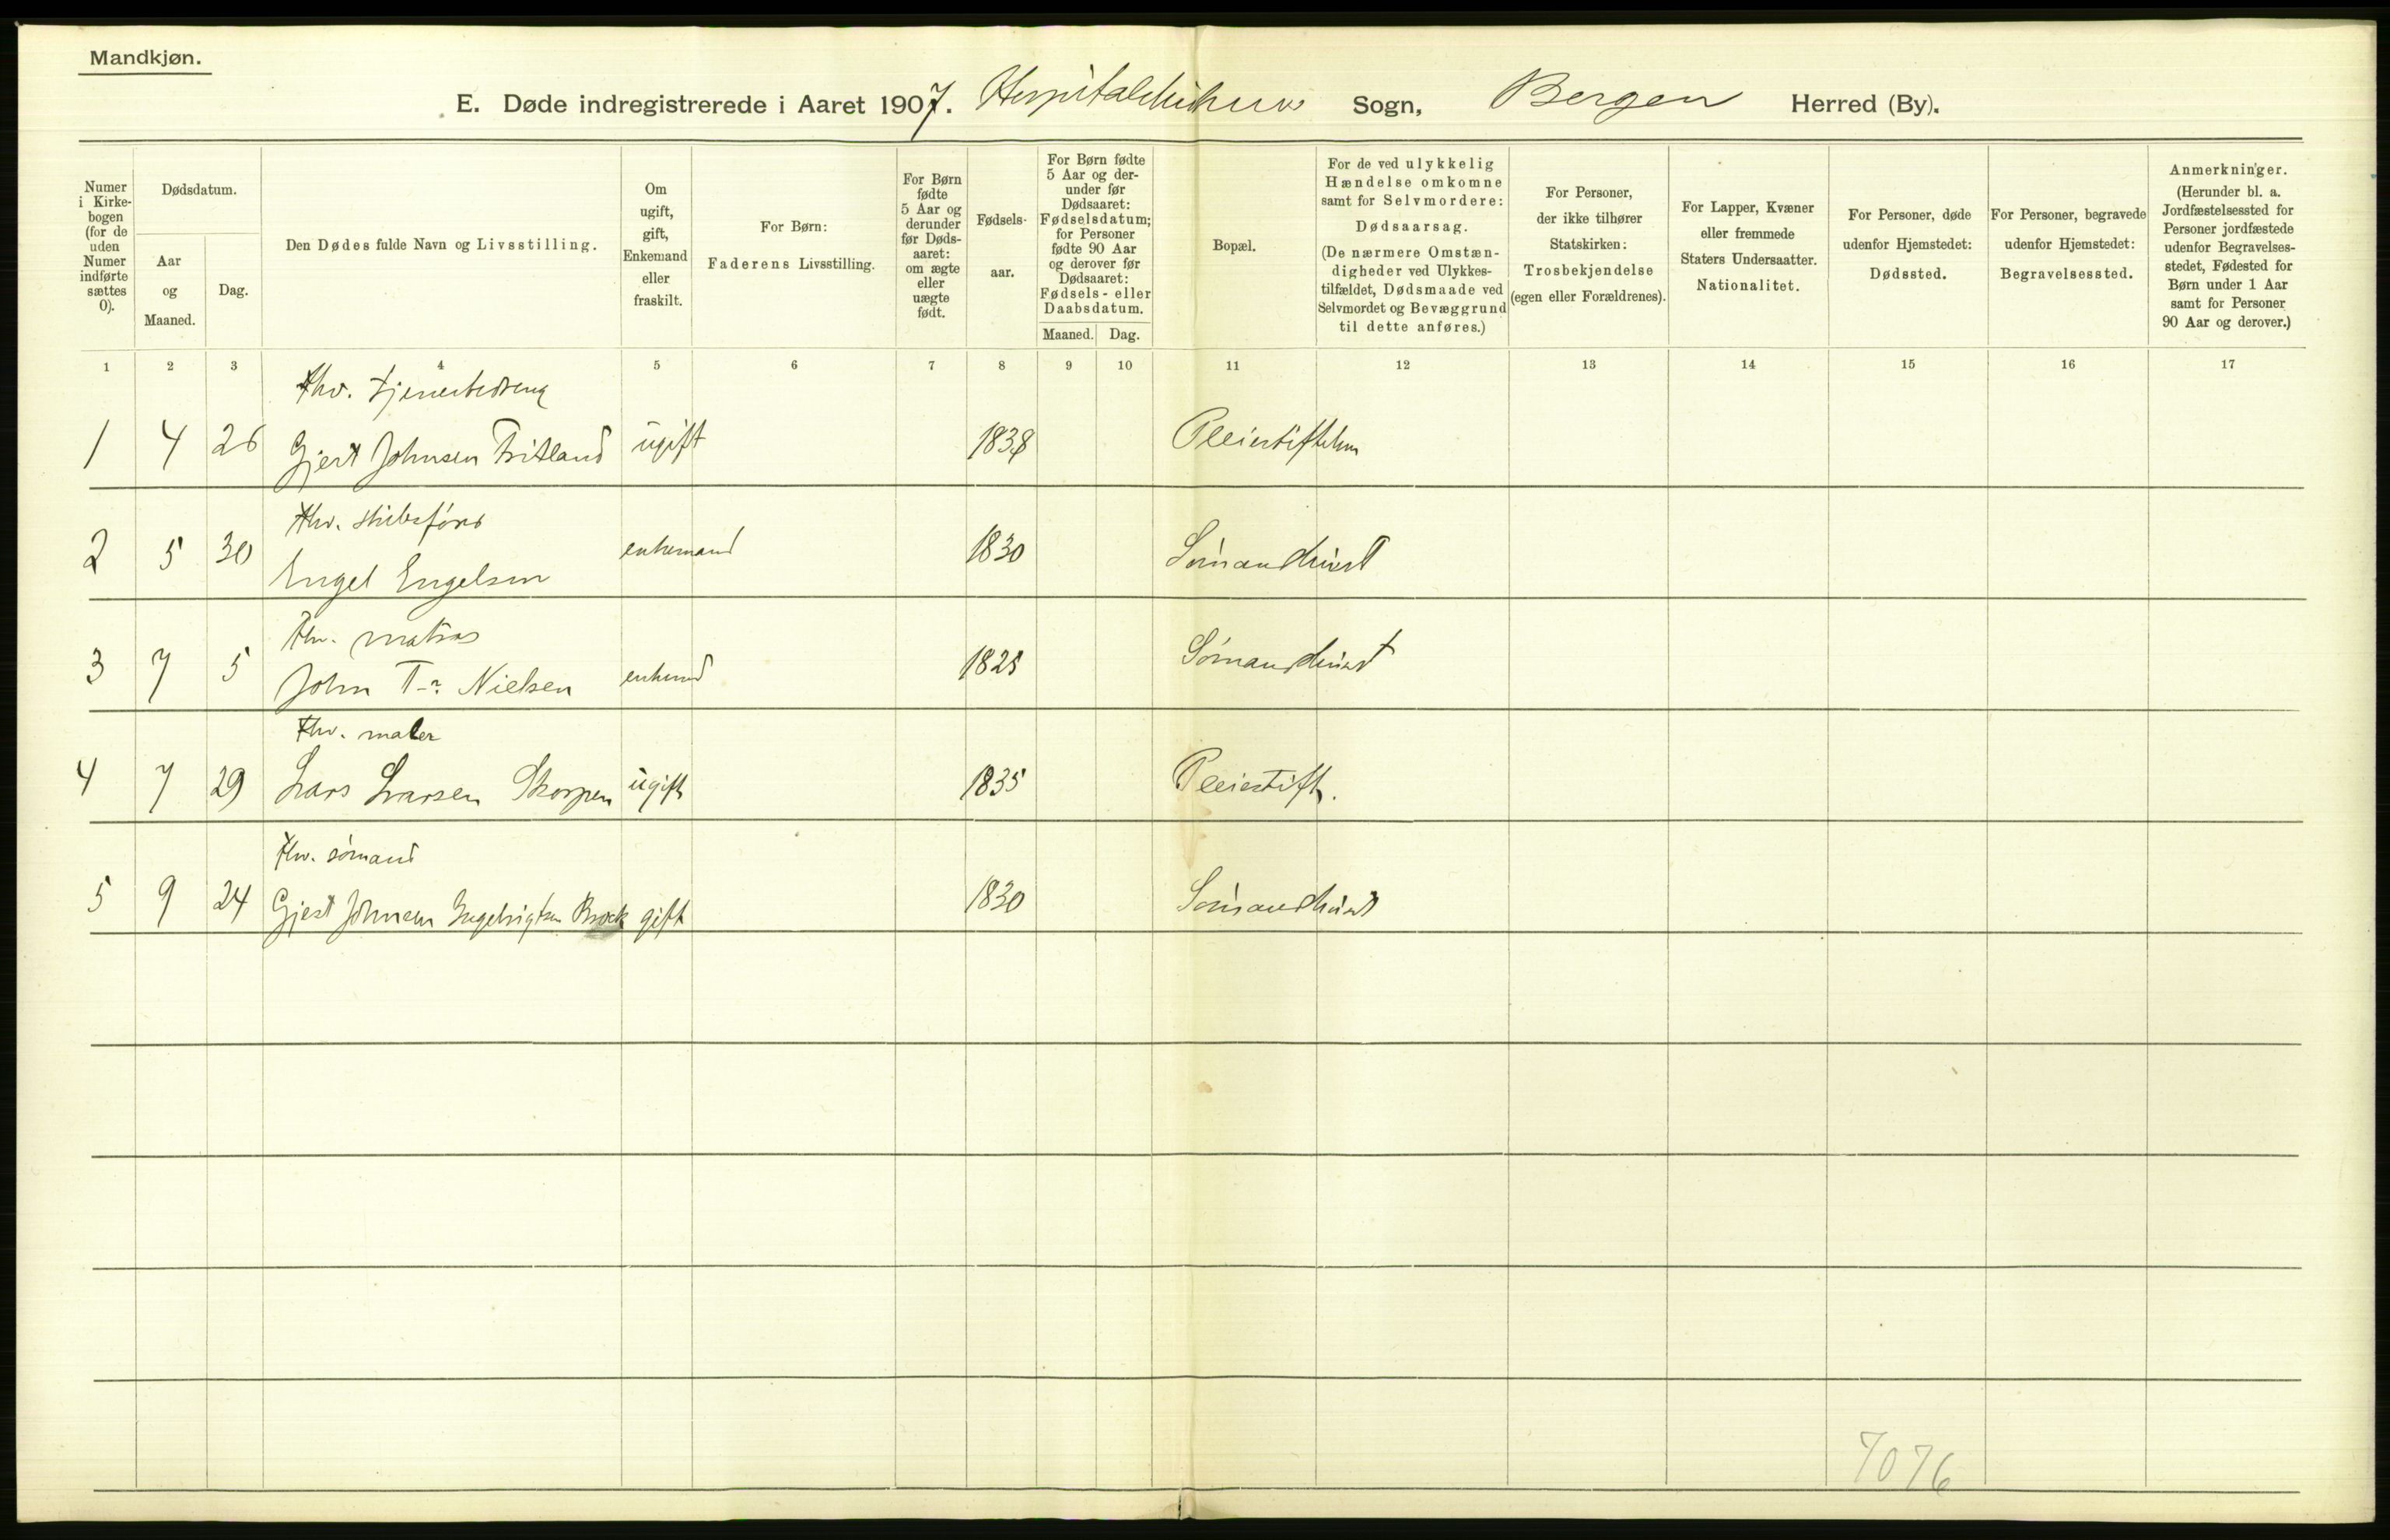 Mandkjøn.
E. Døde indregistrerede i Aaret 1907. Sogn, Bergen Herred (By).
Numer i Kirkebogen (for de uden Numer indførte sættes 0).
Dødsdatum.
Aar og Maaned.
Dag.
Den Dødes fulde Navn og Livsstilling.
Om ugift, gift, Enkemand eller fraskilt.
For Børn:
Faderens Livsstilling.
For Børn fødte 5 Aar og derunder før Dødsaaret: om ægte eller uægte født.
Fødselsaar.
For Børn fødte 5 Aar og derunder før Dødsaaret: Fødselsdatum; for Personer fødte 90 Aar og derover før Dødsaaret: Fødsels- eller Daabsdatum.
Maaned. Dag.
Bopæl.
For de ved ulykkelig Hændelse omkomne samt for Selvmordere:
Dødsaarsag.
(De nærmere Omstændigheder ved Ulykkestilfældet, Dødsmaade ved Selvmordet og Bevæggrund til dette anføres.)
For Personer, der ikke tilhører Statskirken:
Trosbekjendelse
(egen eller Forældrenes).
For Lapper, Kvæner eller fremmede Staters Undersaatter.
Nationalitet.
For Personer, døde udenfor Hjemstedet:
Dødssted.
For Personer, begravede udenfor Hjemstedet:
Begravelsessted.
Anmerkninger.
(Herunder bl. a. Jordfæstelsessted for Personer jordfæstede udenfor Begravelsesstedet, Fødested for Børn under 1 Aar samt for Personer 90 Aar og derover.)
1 2 3 4 5 6 7 8 9 10 11 12 13 14 15 16 17
fhv.
1 4 26 Gjert Johnsen ugift 1838 Pleiestiftelsen
fhv. skibsfører
2 5 30 Engel Engelsen enkemand 1830
fhv. matros
3 7 5 John Nielsen 1825
fhv. maler
4 7 29 Lars Larsen Skorpen ugift 1835 Pleiestift.
fhv. sømand
5 9 24 Gjert Johnsen gift 1830
7076